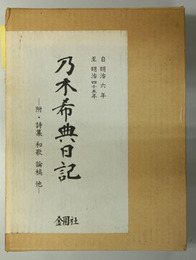 自 明治 六 年
至 明治 四十五年
乃木希典日記
—附・詩集 和歌 論稿 他—
金園社